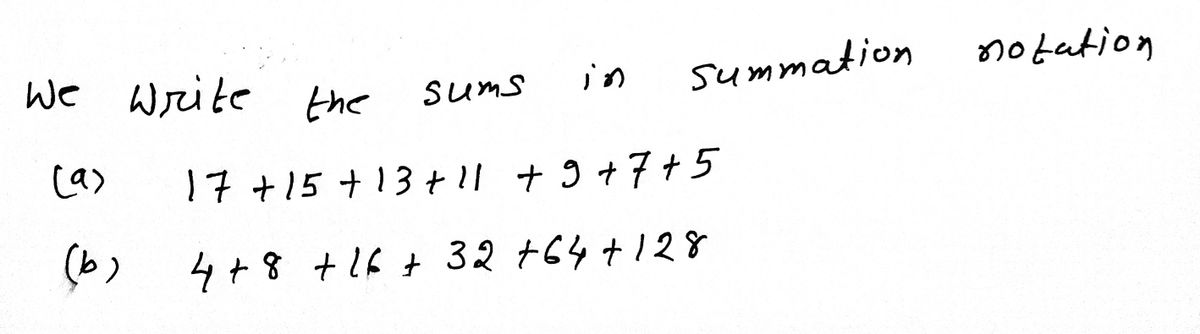 We write the sums in summation notation
(a) 17 + 15 + 13 + 11 + 9 + 7 + 5
(b) 4 + 8 + 16 + 32 + 64 + 128